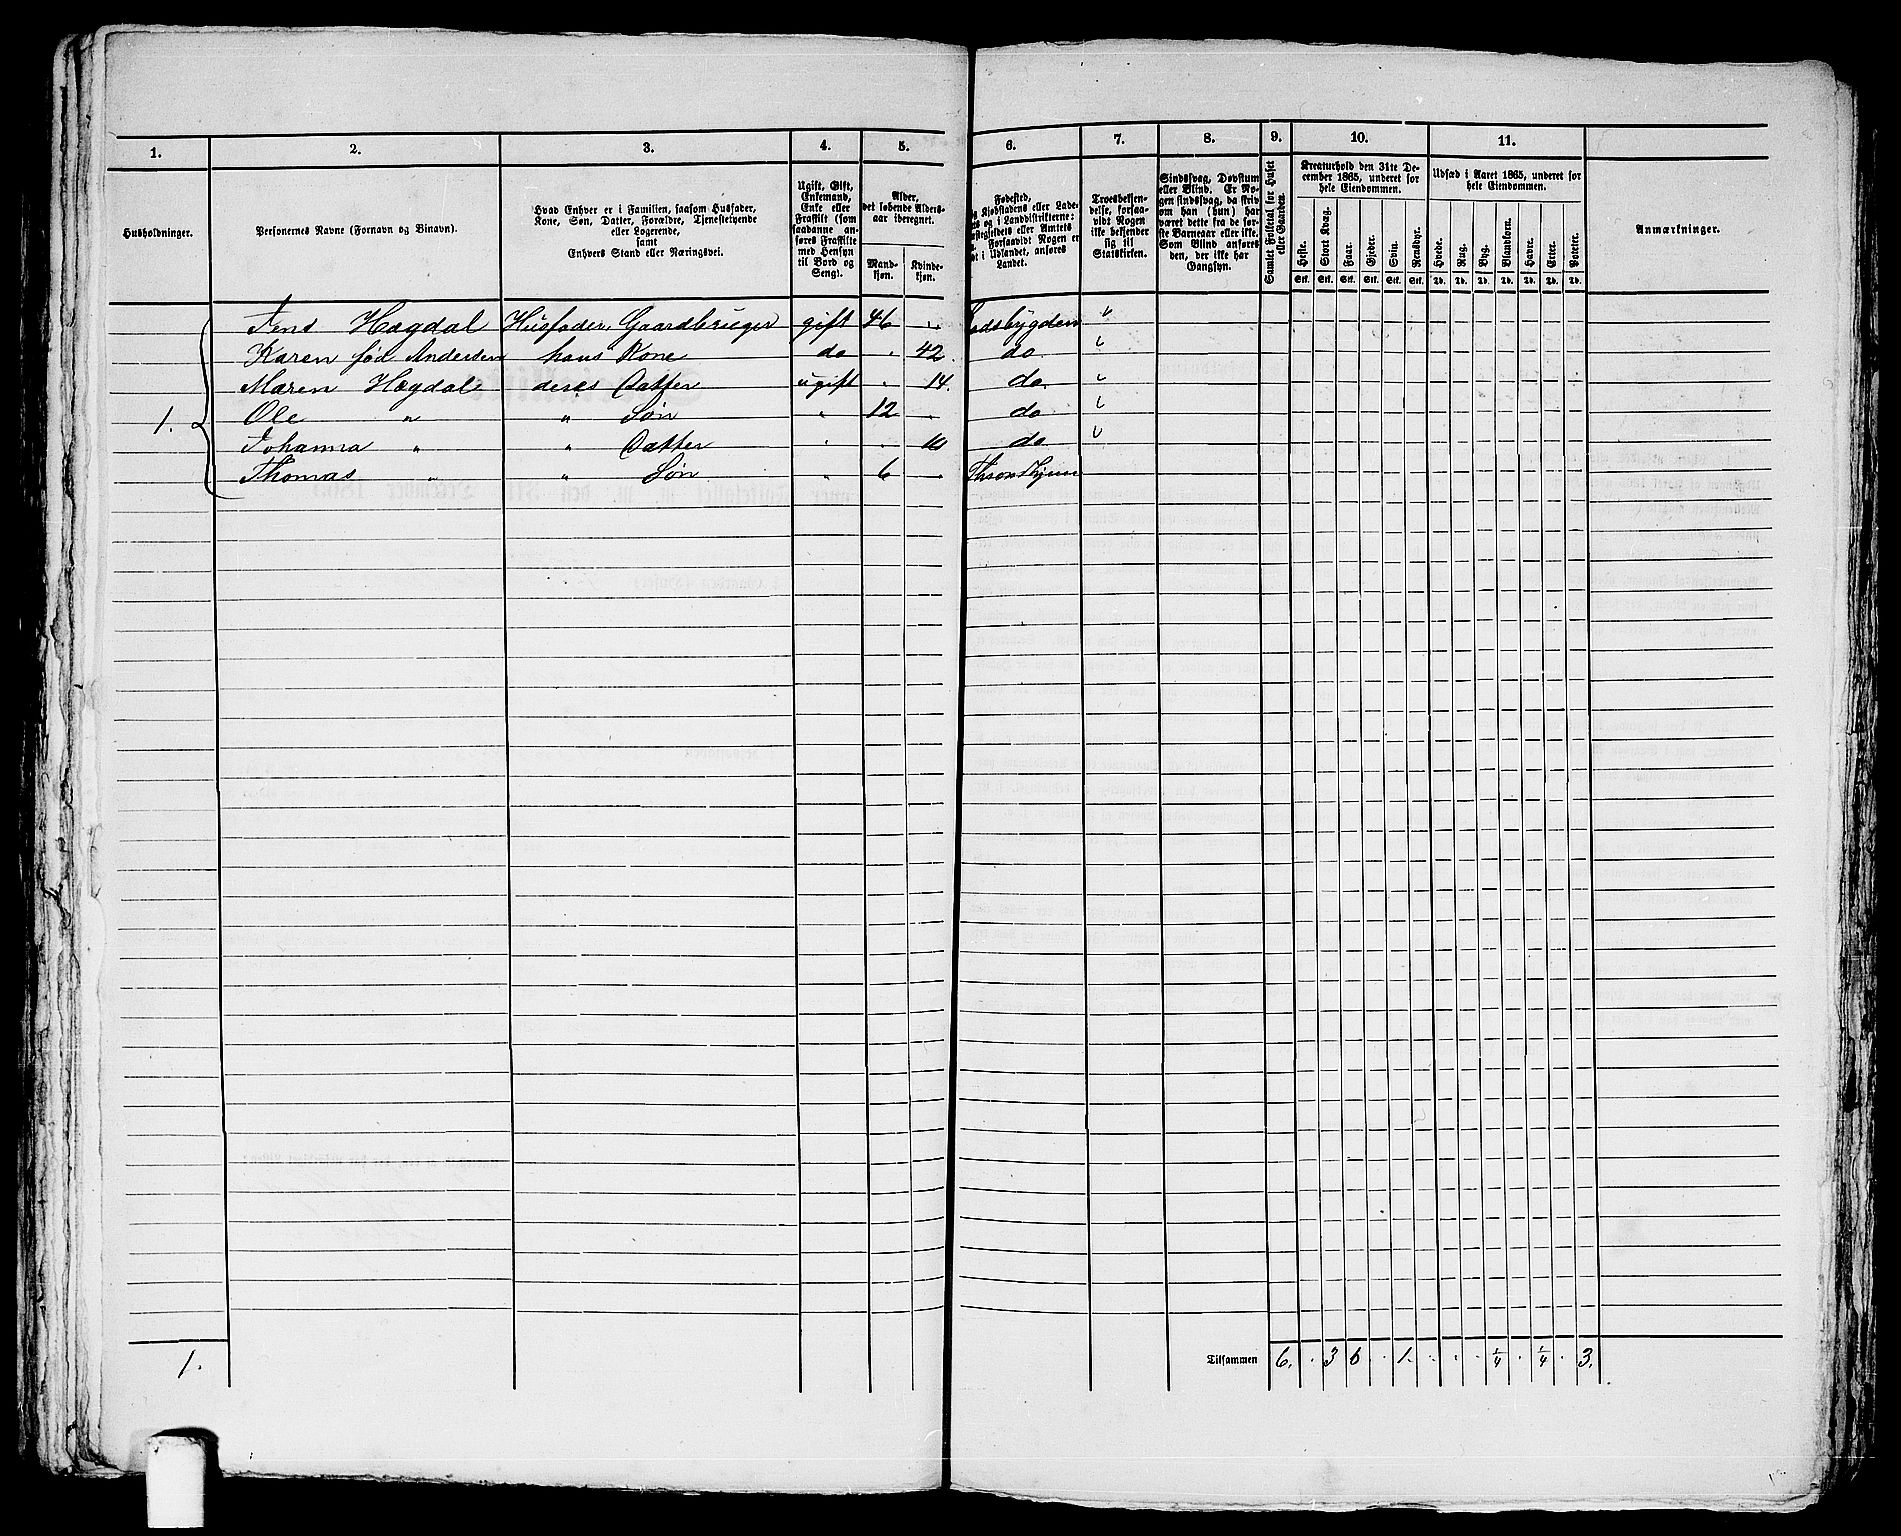 1. 2. 3. 4. 5. 6. 7. 8. 9. 10. 11.
Husholdninger.
Personernes Navne (Fornavn og Binavn).
Hvad Enhver er i Familien, saasom Husfader,
Kone, Søn, Datter, Forældre, Tjenestetyende
eller Logerende,
samt
Enhvers Stand eller Næringsvei.
Ugift, Gift,
Enkemand,
Enke eller
Fraskilt (som
saadanne an-
føres Fraskilte
med Hensyn
til Bord og
Seng).
Alder,
det løbende Alders-
aar iberegnet.
Mand-
kjøn.
Kvinde-
kjøn.
Fødested,
Kjøbstadens eller Lade-
og i Landdistrikterne:
eller Amtets
Forsaavidt Nogen er
i Udlandet, anføres
Landet.
Troesbekjen-
delse, forsaa-
vidt Nogen
ikke bekjender
sig til
Statskirken.
Sindssvag, Døvstum
eller Blind. Er No-
gen sindssvag, da skriv
om han (hun) har
været dette fra de før-
ste Barneaar eller ikke.
Som Blind anføres
den, der ikke har
Gangsyn.
Samlet Folketal for Huset
eller Gaarden.
Kreaturhold den 31te De-
cember 1865, underet for
hele Eiendommen.
Heste. Stort Kvæg. Faar. Gjeder. Svin. Rensdyr.
Stk. Stk. Stk. Stk. Stk. Stk.
Udsæd i Aaret 1865, underet for
hele Eiendommen.
Hvede. Rug. Byg. Blandkorn. Havre. Erter. Poteter.
Td. Td. Td. Td. Td. Td. Td.
Anmærkninger.
Jens Hægdal Husfader, Gaardbruger gift 46 "
Karen fød Andersen hans Kone do " 42. do
Maren Hægdal deres Datter ugift " 14. do
1. Ole " " Søn " 12 " do
Johanna " " Datter " " 10 do
Thomas " " Søn " 6 "
1.
Tilsammen 6. . 3 6 . 1 . . . . 1/4 . 1/4 . 3.